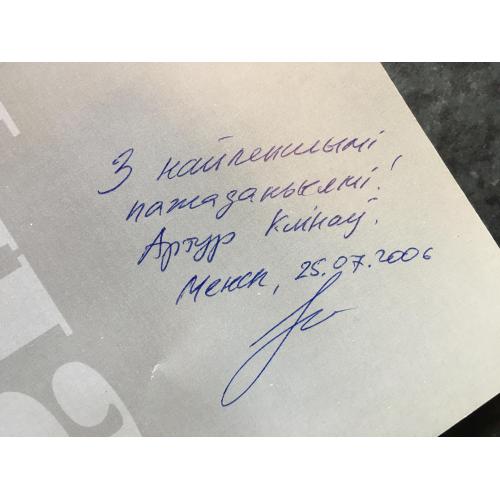 З найлепшымі
пажаданьнямі!
Артур Клінаў.
Менск, 25.07.2006